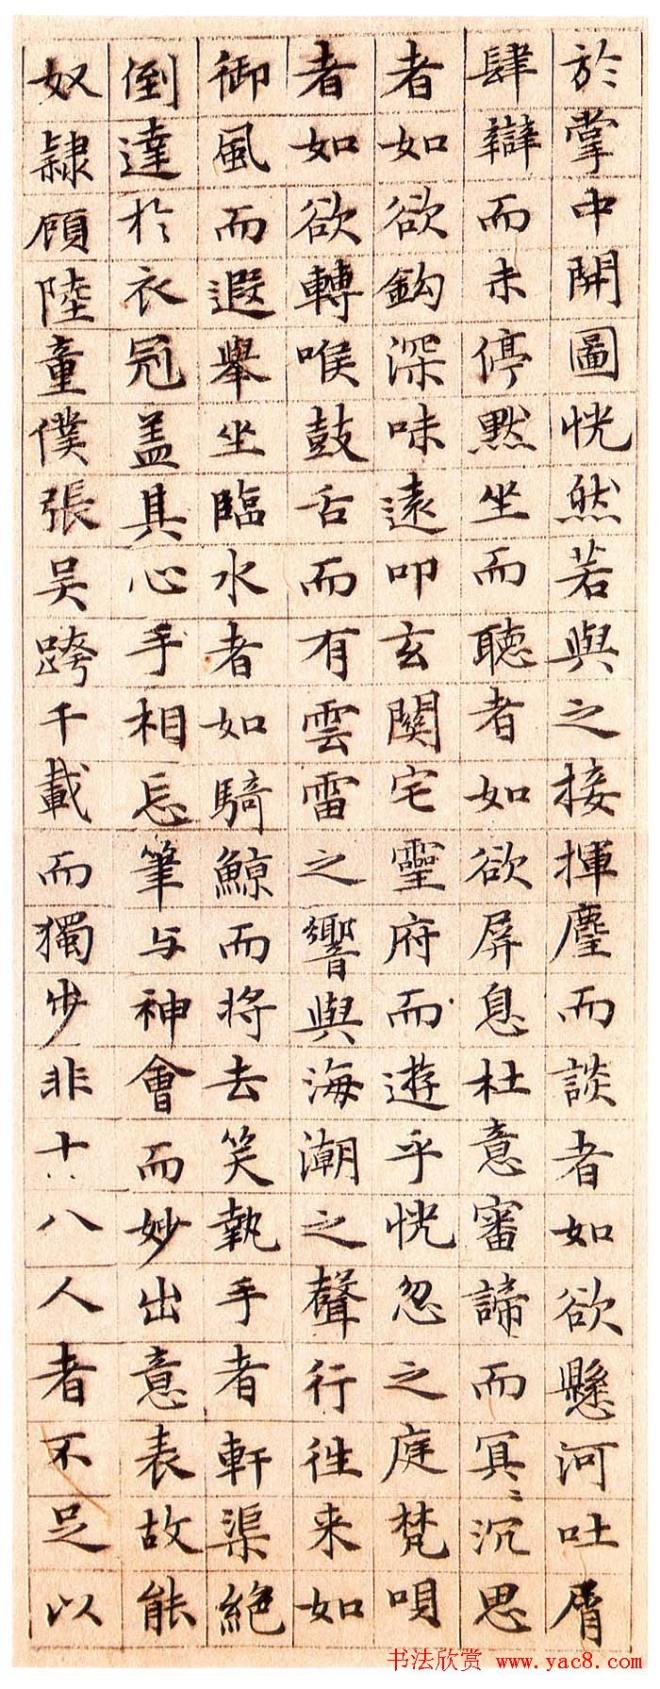 於掌中開圖恍然若與之接揮麈而談者如欲懸河吐屑
肆辯而未停默坐而聽者如欲屏息杜意審諦而冥〻沉思
者如欲鈎深味遠叩玄關宅靈府而遊乎恍忽之庭梵唄
者如欲轉喉鼓舌而有雲雷之響與海潮之聲行徃来如
御風而遐舉坐臨水者如騎鯨而将去笑執手者軒渠絶
倒達於衣冠盖其心手相忘筆与神會而妙出意表故能
奴隷顧陸童僕張吴跨千載而獨步非十八人者不足以
书法欣赏 www.yac8.com